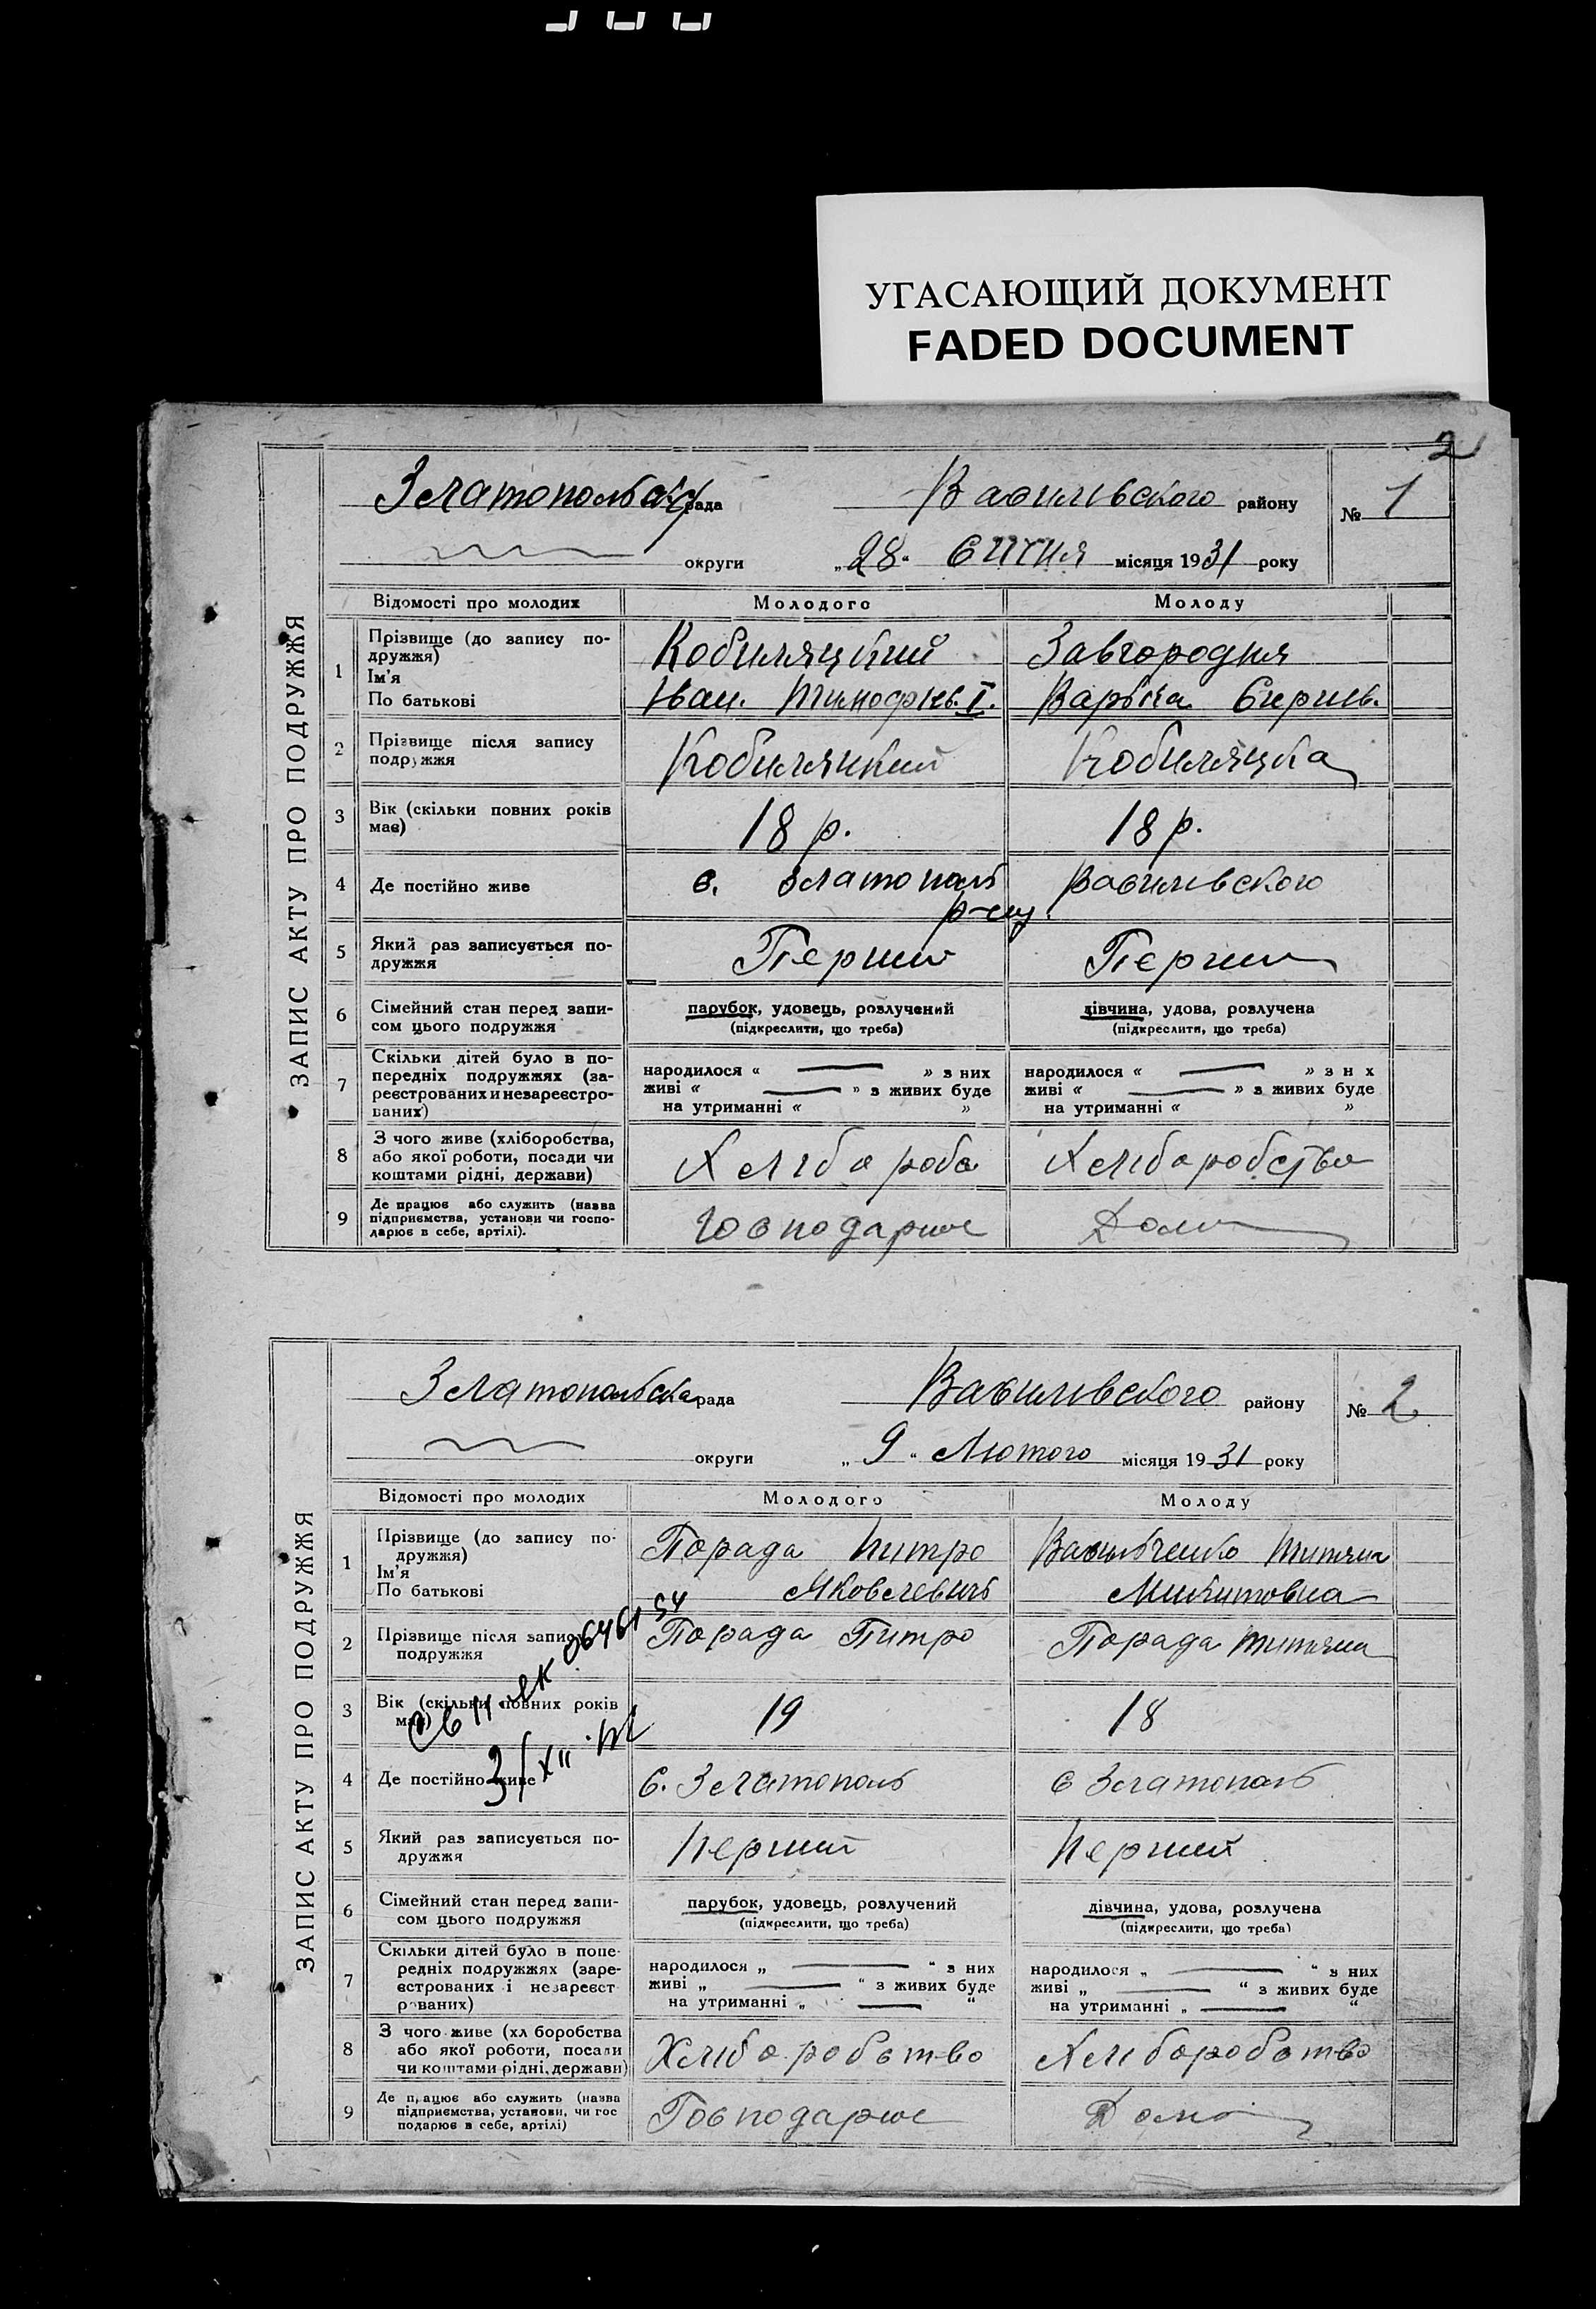 УГАСАЮЩИЙ ДОКУМЕНТ
FADED DOCUMENT
2
ЗАПИС АКТУ ПРО ПОДРУЖЖЯ
Златопольська рада Василівського району № 1
округи „28“ січня місяця 1931 року
Відомості про молодих Молодого Молоду
1 Прізвище (до запису по-
дружжя) Кобиляцкий Завгородня
Ім'я
По батькові Іван. Тимофієв. І. Варька Сергіів.
2 Прізвище після запису
подружжя Кобиляцкий Кобиляцка
3 Вік (скільки повних років
має) 18 р. 18 р.
4 Де постійно живе с. Златополь Василівського
р-ну
5 Який раз записується по-
дружжя Перший Перший
6 Сімейний стан перед запи-
сом цього подружжя парубок, удовець, розлучений дівчина, удова, розлучена
(підкреслити, що треба) (підкреслити, що треба)
7 Скільки дітей було в по-
передніх подружжях (за-
реєстрованих и незареєстро-
ваних) народилося « » з них народилося « » з н х
живі « » з живих буде живі « » з живих буде
на утриманні « » на утриманні « »
8 З чого живе (хліборобства,
або якої роботи, посади чи
коштами рідні, держави) Хлібороба Хліборобство
9 Де працює або служить (назва
підприємства, установи чи госпо-
дарює в себе, артілі). Господарює Дома
ЗАПИС АКТУ ПРО ПОДРУЖЖЯ
Златопольська рада Василівського району № 2
округи „9“ Лютого місяця 1931 року
Відомості про молодих Молодого Молоду
1 Прізвище (до запису по-
дружжя) Порада Питро Васильченко Титяна
Ім'я
По батькові Яковлевичь Микитовна
2 Прізвище після запису
подружжя Порада Питро Порада Титяна
3 Вік (скільки повних років
має) 19 18
4 Де постійно живе С. Златополь с Златополь
31/XII
5 Який раз записується по-
дружжя Перший Перший
6 Сімейний стан перед запи-
сом цього подружжя парубок, удовець, розлучений дівчина, удова, розлучена
(підкреслити, що треба) (підкреслити, що треба)
7 Скільки дітей було в попе-
редніх подружжях (заре-
єстрованих і незареєст
рованих) народилося „ “ з них народилося „ “ з них
живі „ “ з живих буде живі „ “ з живих буде
на утриманні „ “ на утриманні „ “
8 З чого живе (хл боробства
або якої роботи, посади
чи коштами рідні, держави) Хліборобство Хліборобство
9 Де працює або служить (назва
підприємства, установи, чи гос
подарює в себе, артілі) Господарює Дома